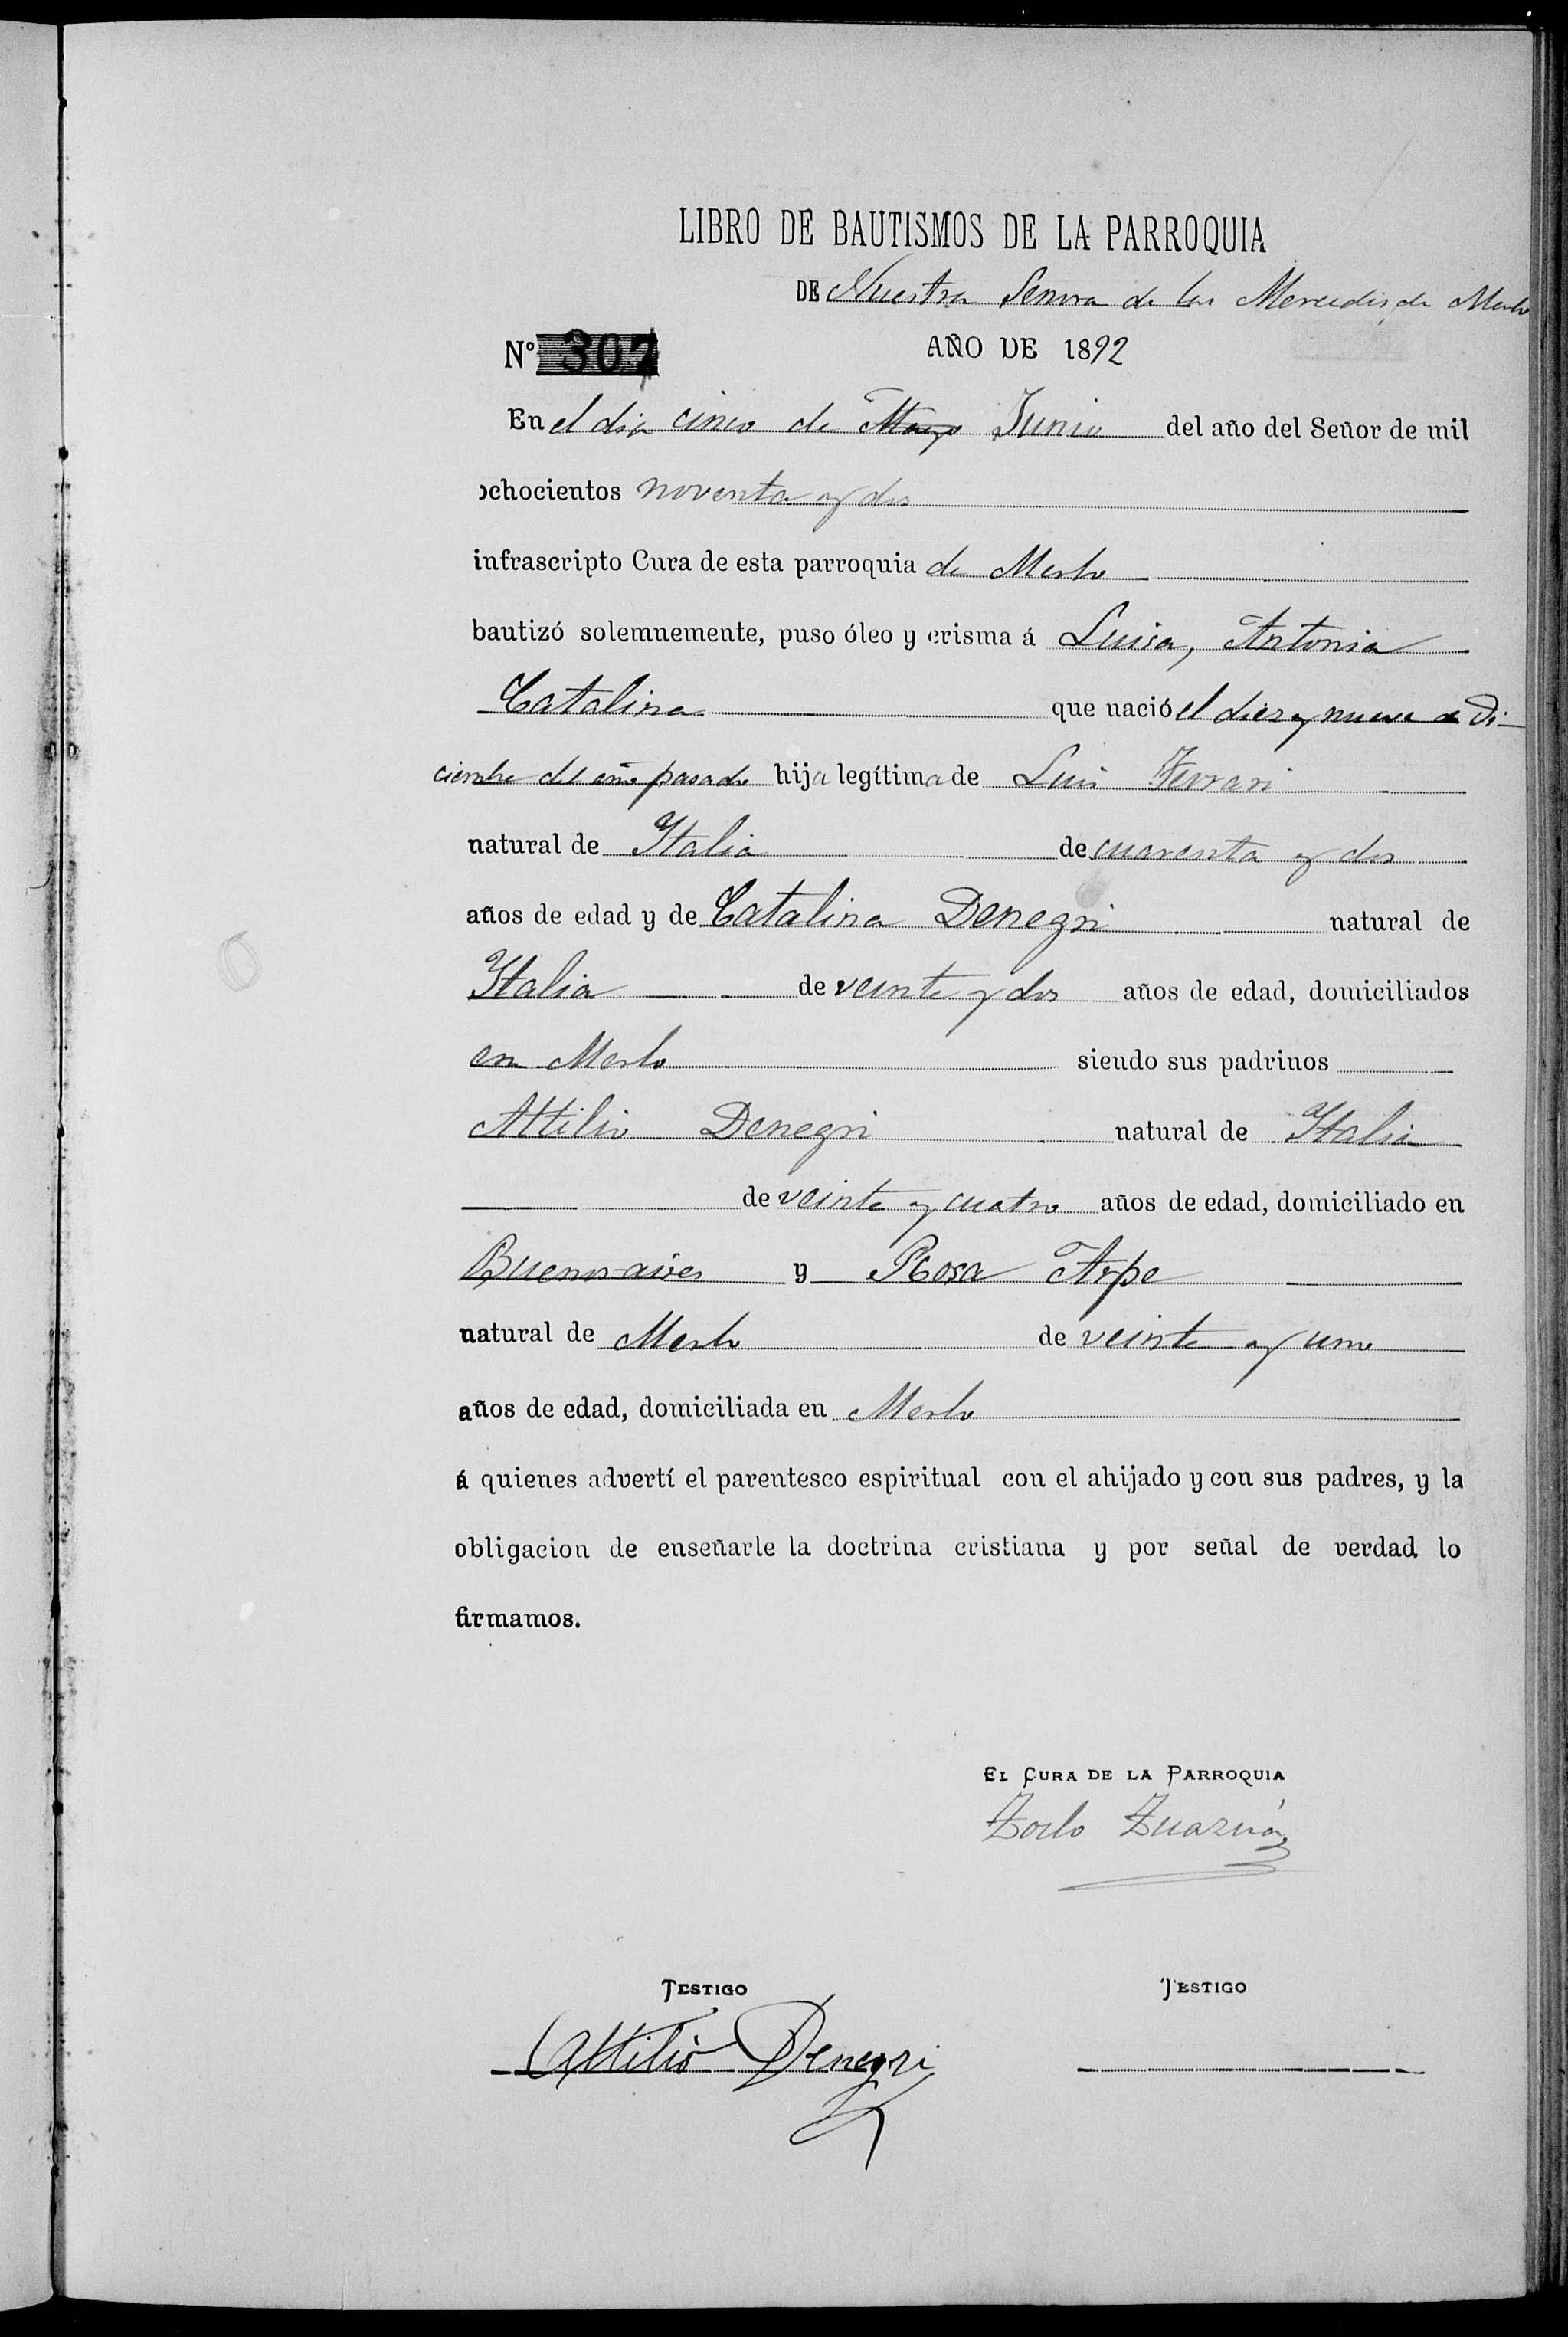 LIBRO DE BAUTISMOS DE LA PARROQUIA
DE Nuestra Senora de las Mercedes de Merlo
Nº 307
AÑO DE 1892
En el dia cinco de Mayo Junio del año del Señor de mil
ochocientos noventa y dos
infrascripto Cura de esta parroquia de Merlo
bautizó solemnemente, puso óleo y crisma á Luisa, Antonia
Catalina que nació el diez y nueve de Di-
ciembre del año pasado hija legítima de Luis Ferrari
natural de Italia de cuarenta y dos
años de edad y de Catalina Denegri natural de
Italia de veinte y dos años de edad, domiciliados
en Merlo siendo sus padrinos
Attilio Denegri natural de Italia
de veinte y cuatro años de edad, domiciliado en
Buenos-aires y Rosa Arpe
natural de Merlo de veinte y uno
años de edad, domiciliada en Merlo
á quienes advertí el parentesco espiritual con el ahijado y con sus padres, y la
obligacion de enseñarle la doctrina cristiana y por señal de verdad lo
firmamos.
EL CURA DE LA PARROQUIA
Zoilo
TESTIGO TESTIGO
Attilio Denegri